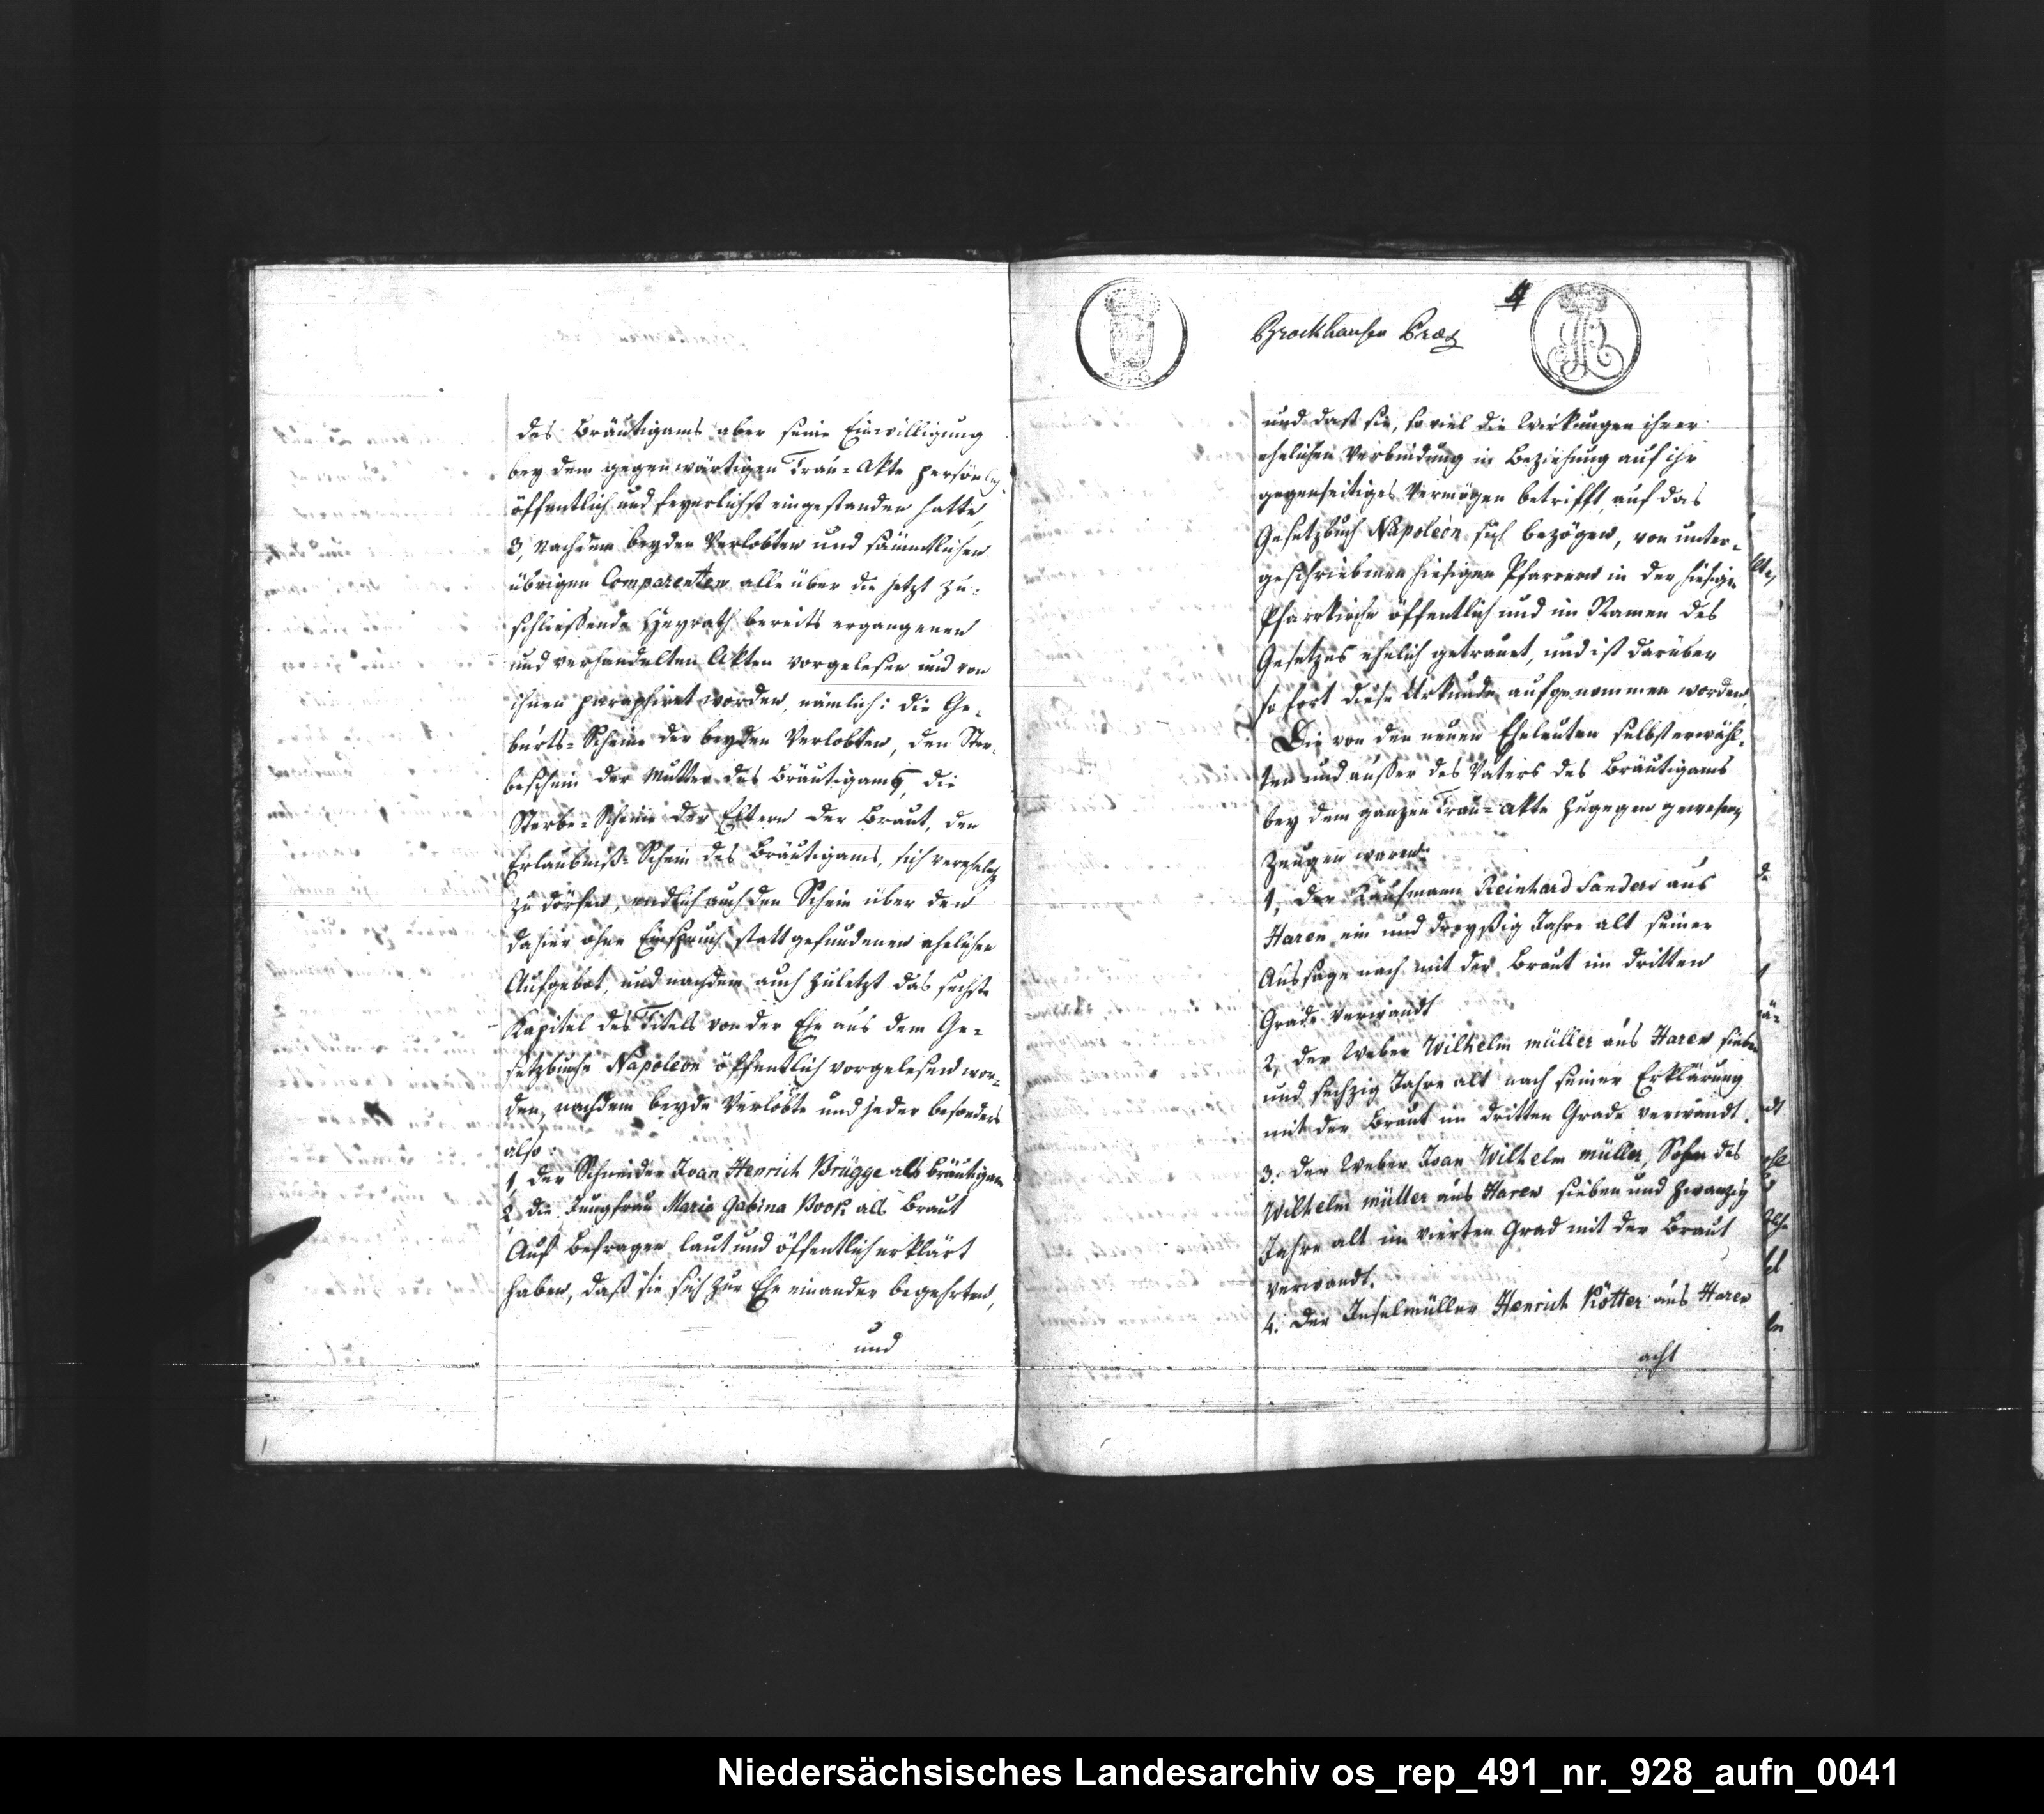 des Bräutigams aber seine Einwilligung
bey dem gegenwärtigen Trau-Akte persönlich
öffentlich und feyerlichst eingestanden hatte,
3, Nachdem beyden Verlobten und sämmtlichen
übrigen Comparenten alle über die jetzt zu-
schließende Heyrath bereits ergangenen
und verhandelten Akten vorgelesen und von
ihnen paraphiret worden, nämlich: die Ge-
burts-Scheine der beyden Verlobten, den Ster-
beschein der Mutter des Bräutigams, die
Sterbe-Scheine der Eltern der Braut, den
Erlaubniß-Schein des Bräutigams, sich verehelichen
zu dörfen, endlich auch den Schein über den
dahier ohne Einspruch statt gefundenen ehelichen
Aufgebot, und nachdem auch zuletzt das sechste
Kapitel des Titels von der Ehe aus dem Ge-
setzbuche Napoleon öffentlich vorgelesen wor-
den, nachdem beyde Verlobte und jeder besonders
also:
1, der Schneider Joan Henrich Brügge als Bräutigam
2, die Jungfrau Maria Gabina Book als Braut
Auf Befragen laut und öffentlich erklärt
haben, daß sie sich zur Ehe einander begehrten,
und
4
Brockhausen
und daß sie, so viel die Wirkungen ihrer
ehelichen Verbindung in Beziehung auf ihr
gegenseitiges Vermögen betrifft, auf das
Gesetzbuch Napoleon sich bezögen, von unter-
geschriebenen hiesigen Pfarrern in der hiesigen
Pfarrkirche öffentlich und im Namen des
Gesetzes ehelich getrauet, und ist darüber
so fort diese Urkunde aufgenommen worden.
Die von den neuen Eheleuten selbst erwähl-
ten und außer des Vaters des Bräutigams
bey dem ganzen Trau-Akte zugegen gewesenen
Zeugen waren:
1, Der Kaufmann Reinhard Sanders aus
Haren ein und dreyßig Jahre alt seiner
Aussage nach mit der Braut im dritten
Grade verwandt
2, der Weber Wilhelm müller aus Haren sieben
und sechzig Jahre alt nach seiner Erklärung
mit der Braut im dritten Grade verwandt.
3. der Weber Joan Wilhelm müller, Sohn des
Wilhelm müller aus Haren sieben und zwanzig
Jahre alt im vierten Grad mit der Braut
verwandt.
4. Der Henrich Kötter aus Haren
acht
Niedersächsisches Landesarchiv os_rep_491_nr._928_aufn_0041